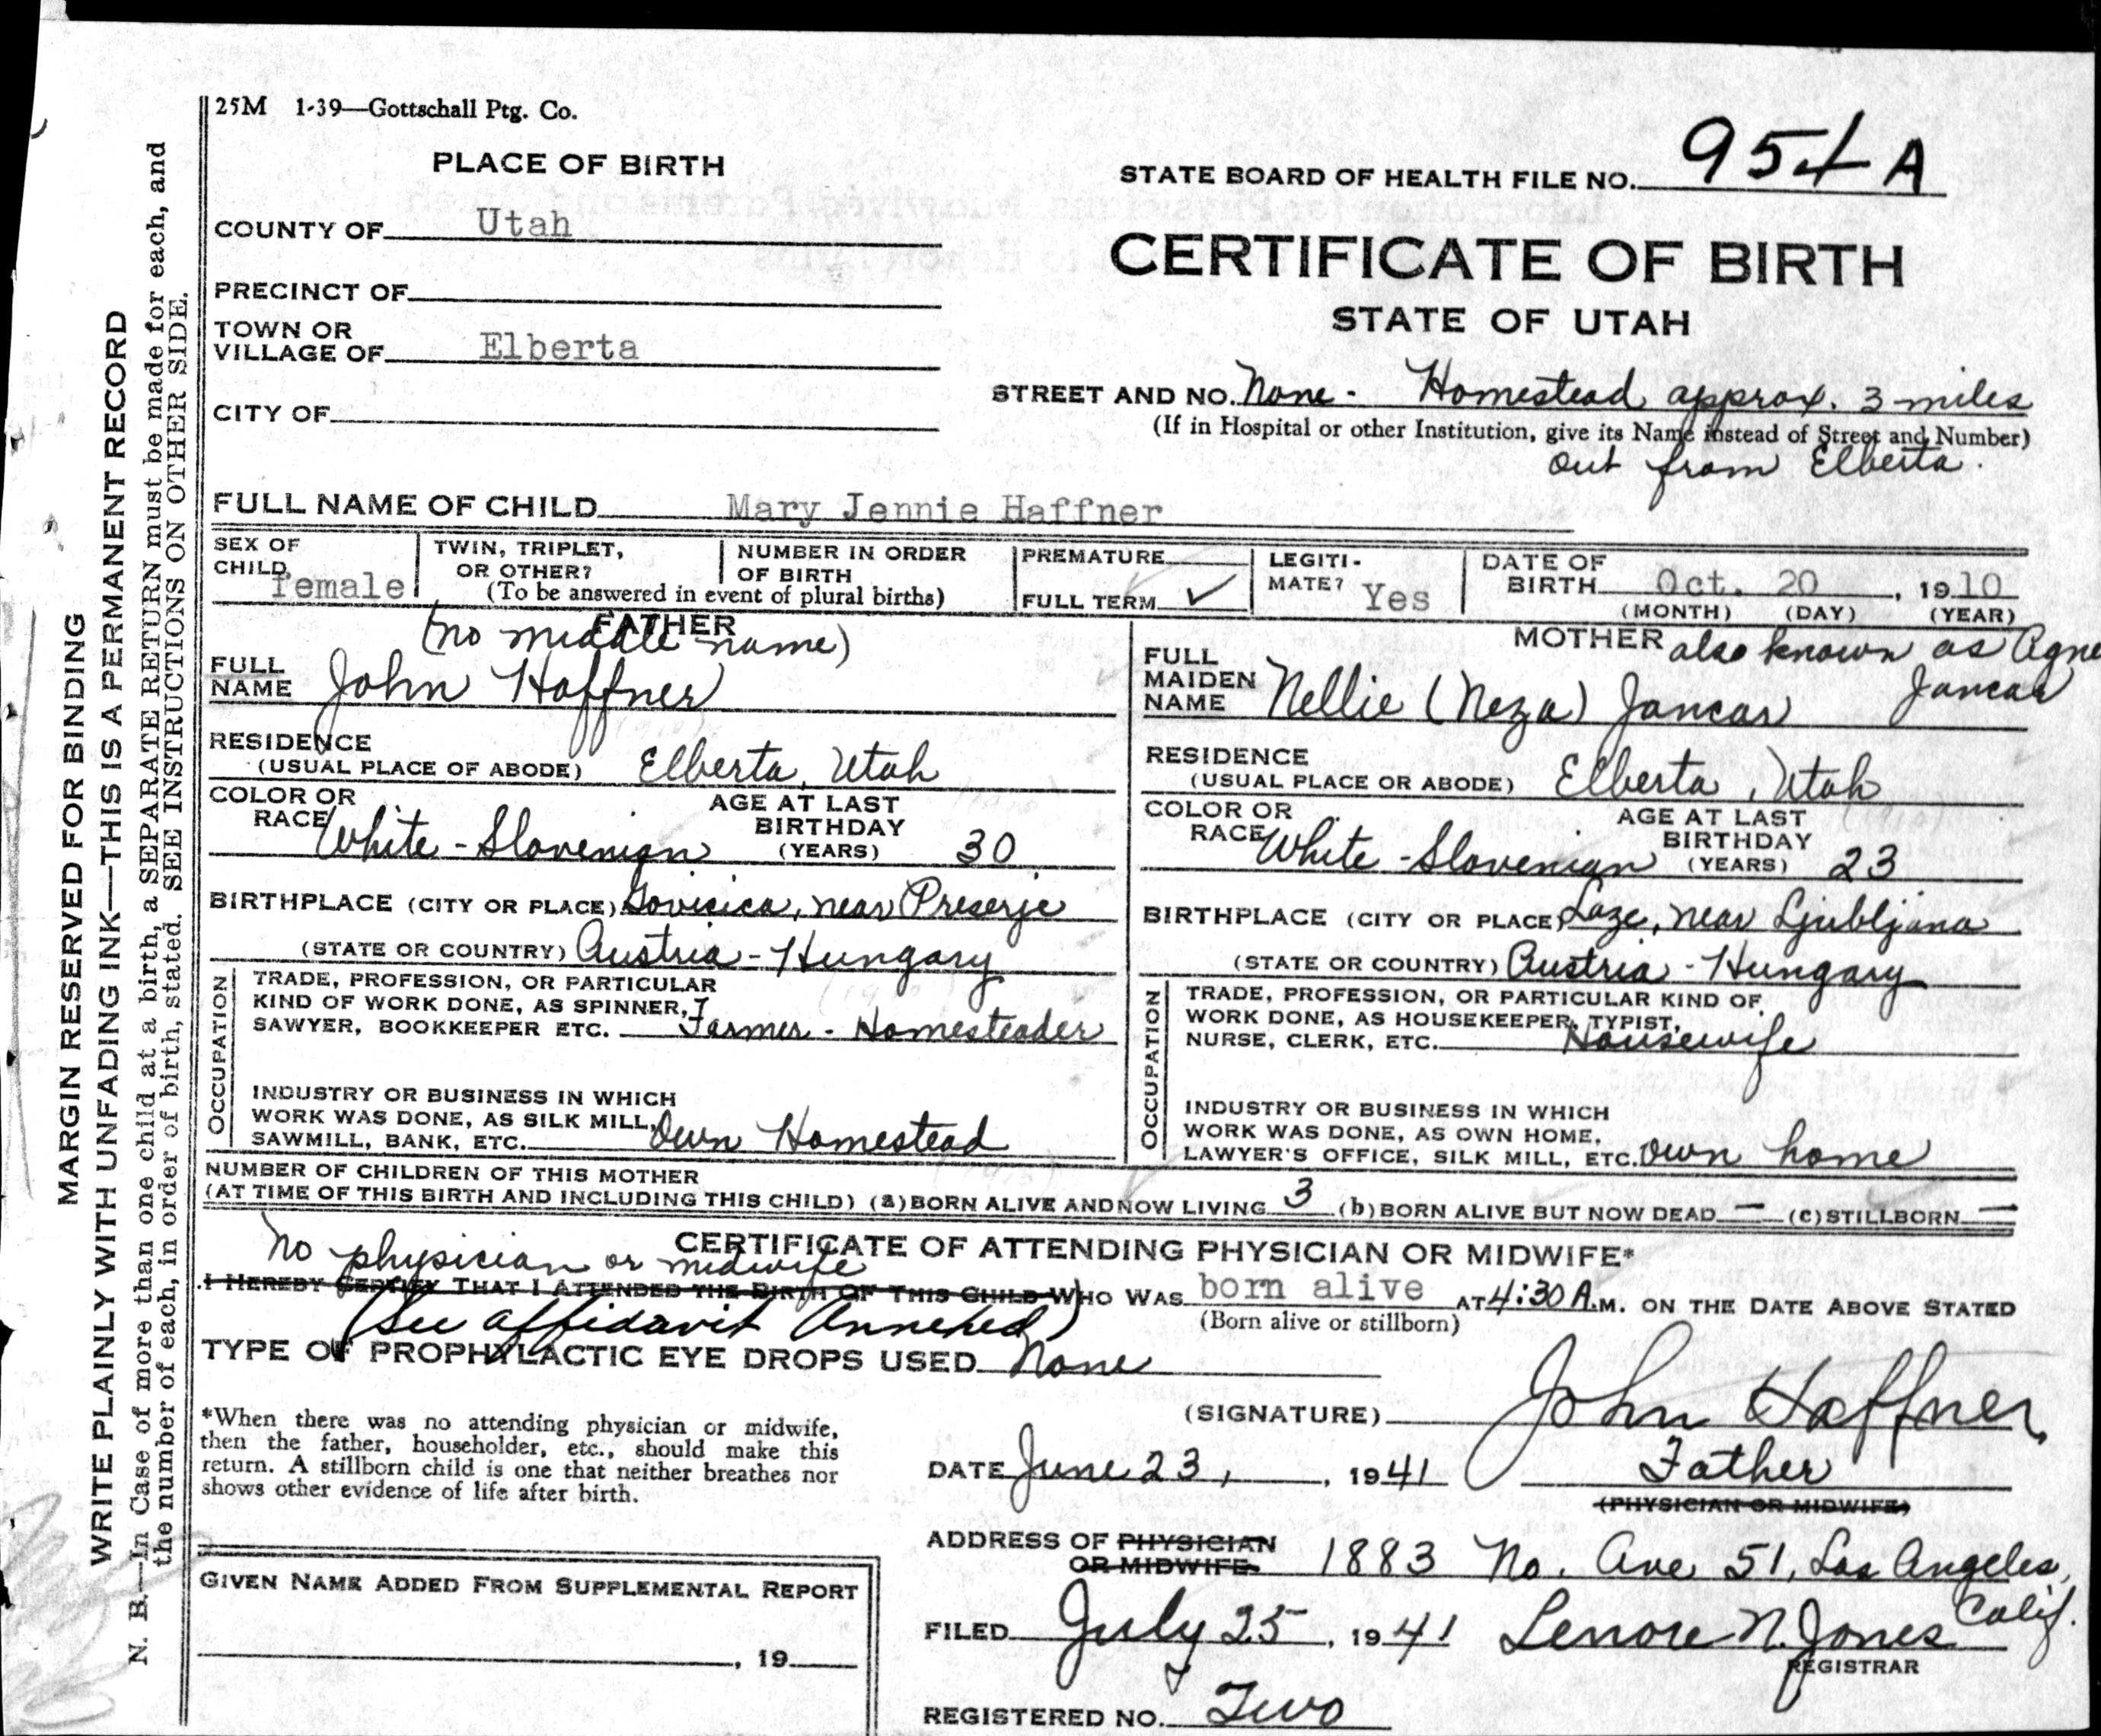 25M 1-39—Gottschall Ptg. Co.
PLACE OF BIRTH
STATE BOARD OF HEALTH FILE NO. 954 A
COUNTY OF Utah
CERTIFICATE OF BIRTH
PRECINCT OF
STATE OF UTAH
TOWN OR
VILLAGE OF Elberta
STREET AND NO. None - Homestead approx. 3 miles
(If in Hospital or other Institution, give its Name instead of Street and Number)
out from Elberta.
CITY OF
FULL NAME OF CHILD Mary Jennie Haffner
SEX OF
CHILD female
TWIN, TRIPLET,
OR OTHER?
NUMBER IN ORDER
OF BIRTH
(To be answered in event of plural births)
PREMATURE
FULL TERM ✓
LEGITI-
MATE? Yes
DATE OF
BIRTH Oct. 20, 1910
(MONTH) (DAY) (YEAR)
FATHER
(no middle name)
FULL
NAME John Haffner
RESIDENCE
(USUAL PLACE OF ABODE) Elberta, Utah
COLOR OR
RACE White - Slovenian
AGE AT LAST
BIRTHDAY
(YEARS) 30
BIRTHPLACE (CITY OR PLACE) near Preserje
(STATE OR COUNTRY) Austria - Hungary
OCCUPATION
TRADE, PROFESSION, OR PARTICULAR
KIND OF WORK DONE, AS SPINNER,
SAWYER, BOOKKEEPER ETC. Farmer - Homesteader
INDUSTRY OR BUSINESS IN WHICH
WORK WAS DONE, AS SILK MILL,
SAWMILL, BANK, ETC. Own Homestead
MOTHER also known as Agne
Jancar
FULL
MAIDEN
NAME Nellie (Neza) Jancar
RESIDENCE
(USUAL PLACE OR ABODE) Elberta, Utah
COLOR OR
RACE White - Slovenian
AGE AT LAST
BIRTHDAY
(YEARS) 23
BIRTHPLACE (CITY OR PLACE) Laze, near Ljubljana
(STATE OR COUNTRY) Austria - Hungary
OCCUPATION
TRADE, PROFESSION, OR PARTICULAR KIND OF
WORK DONE, AS HOUSEKEEPER, TYPIST,
NURSE, CLERK, ETC. Housewife
INDUSTRY OR BUSINESS IN WHICH
WORK WAS DONE, AS OWN HOME,
LAWYER'S OFFICE, SILK MILL, ETC. Own home
NUMBER OF CHILDREN OF THIS MOTHER
(AT TIME OF THIS BIRTH AND INCLUDING THIS CHILD) (a) BORN ALIVE AND NOW LIVING 3 (b) BORN ALIVE BUT NOW DEAD — (c) STILLBORN —
CERTIFICATE OF ATTENDING PHYSICIAN OR MIDWIFE*
No physician or midwife
I HEREBY CERTIFY THAT I ATTENDED THE BIRTH OF THIS CHILD WHO WAS born alive AT 4:30 A.M. ON THE DATE ABOVE STATED
(Born alive or stillborn)
(See affidavit Annexed)
TYPE OF PROPHYLACTIC EYE DROPS USED None
*When there was no attending physician or midwife,
then the father, householder, etc., should make this
return. A stillborn child is one that neither breathes nor
shows other evidence of life after birth.
(SIGNATURE) John Haffner
DATE June 23, 1941 Father
(PHYSICIAN OR MIDWIFE)
ADDRESS OF PHYSICIAN
OR MIDWIFE 1883 No. Ave 51, Los Angeles,
Calif.
GIVEN NAME ADDED FROM SUPPLEMENTAL REPORT
, 19
FILED July 25, 1941 Lenore N. Jones
REGISTRAR
REGISTERED NO. Two
MARGIN RESERVED FOR BINDING
WRITE PLAINLY WITH UNFADING INK—THIS IS A PERMANENT RECORD
N. B.—In Case of more than one child at a birth, a SEPARATE RETURN must be made for each, and
the number of each, in order of birth, stated. SEE INSTRUCTIONS ON OTHER SIDE.